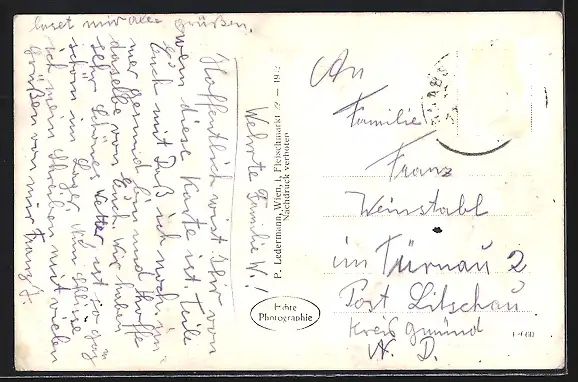 Werte Familie W.!
Hoffentlich wirst Ihr von
wem diese Karte ist. Teile
Euch mit Daß ich noch im
mer gesund bin und hoffe
daselbe von Euch. Wir haben
sehr schönes Wetter ist ja ganz
schön im Lager. Nun schließe
ich mein Schreiben mit vielen
Grüßen von mir Franz.
laset mir alle grüßen.
P. Ledermann, Wien, I., Fleischmarkt
Nachdruck verboten
Echte
Photographie
An
Familie
Franz
Weinstabl
in Türnau 2
Post Litschau
Kreis Gmünd
N. D.